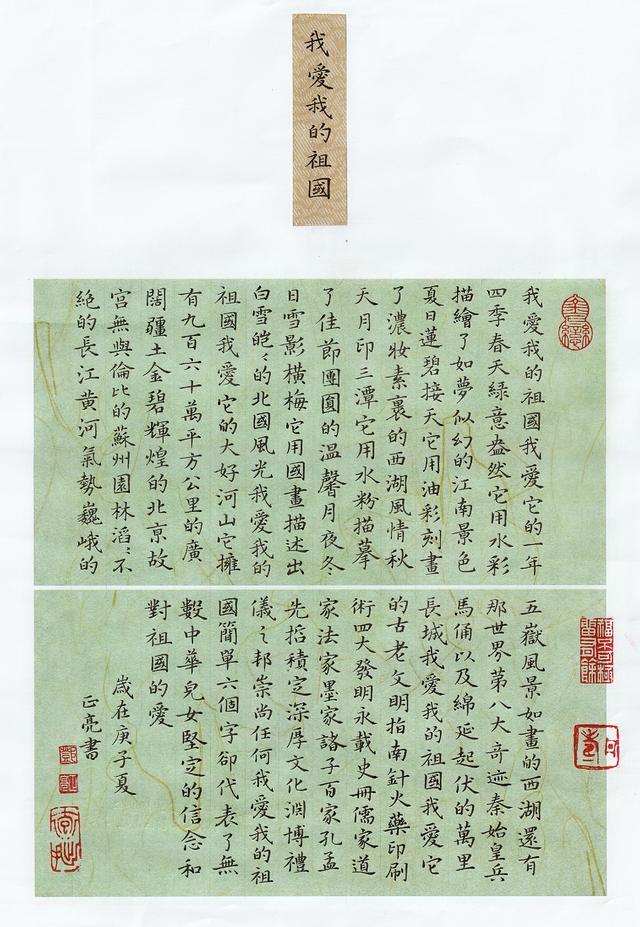 我愛我的祖國
我愛我的祖國我愛它的一年
四季春天緑意盎然它用水彩
描繪了如夢似幻的江南景色
夏日蓮碧接天它用油彩刻畫
了濃妝素裹的西湖風情秋
天月印三潭它用水粉描摹
了佳節團圓的温馨月夜冬
日雪影橫梅它用國畫描述出
白雪皚〻的北國風光我愛我的
祖國我愛它的大好河山它擁
有九百六十萬平方公里的廣
闊疆土金碧輝煌的北京故
宮無與倫比的蘇州園林滔〻不
絕的長江黄河氣勢巍峨的
五嶽風景如畫的西湖還有
那世界第八大奇迹秦始皇兵
馬俑以及綿延起伏的萬里
長城我愛我的祖國我愛它
的古老文明指南針火藥印刷
術四大發明永載史冊儒家道
家法家墨家諸子百家孔孟
先哲積定深厚文化淵博禮
儀之邦崇尚任何我愛我的祖
國簡單六個字卻代表了無
數中華兒女堅定的信念和
對祖國的愛
歲在庚子夏
正亮書